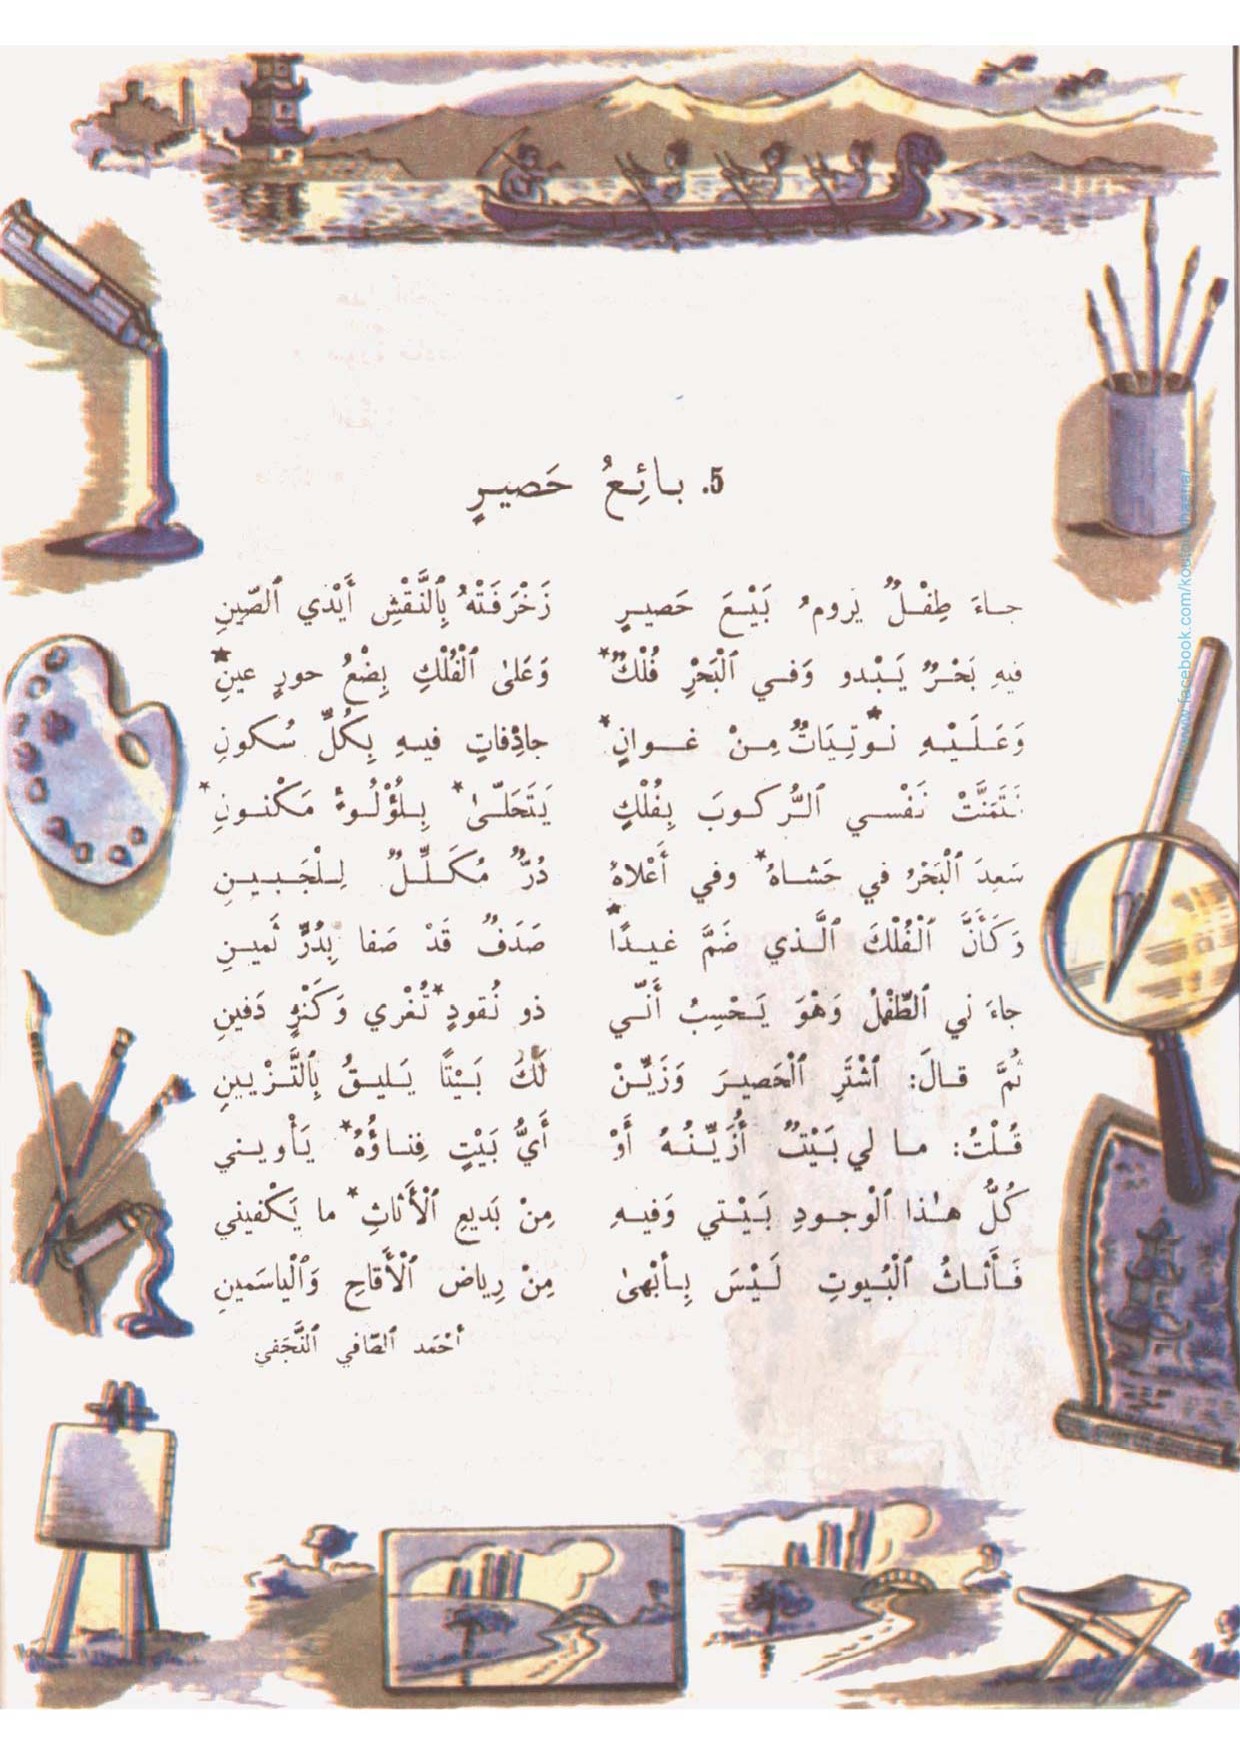 5. بائِعُ حَصيرٍ
جاءَ طِفْلٌ يَرومُ بَيْعَ حَصيرٍ زَخْرَفَتْهُ بِٱلنَّقْشِ أَيْدي ٱلصّينِ
فيهِ بَحْرٌ يَبْدو وَفي ٱلْبَحْرِ فُلْكٌ* وَعَلىٰ ٱلْفُلْكِ بِضْعُ حورٍ عينِ*
وَعَلَيْهِ نوتِيَاتٌ* مِنْ غَوانٍ* جاذِفاتٍ فيهِ بِكُلِّ سُكونِ
تَتَمَنَّتْ نَفْسي ٱلرُّكوبَ بِفُلْكٍ يَتَحَلّىٰ* بِلُؤْلُوءٍ مَكْنونِ*
سَعِدَ ٱلْبَحْرُ في حَشاهُ* وفي أَعْلاهُ دُرٌّ مُكَلِّلٌ لِلْجَبينِ
وَكَأَنَّ ٱلْفُلْكَ ٱلَّذي ضَمَّ غيدًا* صَدَفٌ قَدْ صَفا بِدُرٍّ ثَمينِ
جاءَني ٱلطِّفْلُ وَهْوَ يَحْسِبُ أَنّي ذو نُقودٍ* تُغْري وَكَنْزٍ دَفينِ
ثُمَّ قالَ: ٱشْتَرِ ٱلْحَصيرَ وَزَيِّنْ لَكَ بَيْتًا يَليقُ بِٱلتَّزْيينِ
قُلْتُ: ما لي بَيْتٌ أُزَيِّنُهُ أَوْ أَيُّ بَيْتٍ فِناؤُهُ* يَأْويني
كُلُّ هٰذا ٱلْوُجودِ بَيْتي وَفيهِ مِنْ بَديعِ ٱلْأَثاثِ* ما يَكْفيني
فَأَثاثُ ٱلْبُيوتِ لَيْسَ بِأَبْهىٰ مِنْ رِياضِ ٱلْأَقاحِ وَٱلْياسَمينِ
أحْمَد ٱلصّافي ٱلنَّجَفي